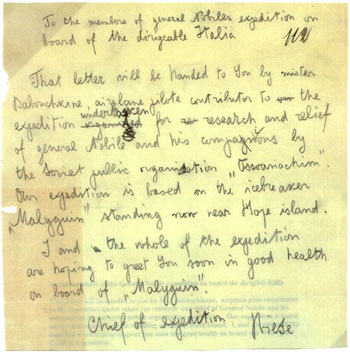 To the members of general Nobiles expedition on
board of the dirigeable Italia
That letter will be handed to You by mister
Babouchkine, airplane pilote contributor to the
expedition undertaken for research and relief
of general Nobile and his compagnons by
the Soviet public organisation "Ossoaviachim".
Our expedition is based on the icebreaker
"Malyguin" standing now near Hope island.
I and the whole of the expedition
are hoping to greet You soon in good health
on board of "Malyguin".
Chief of expedition Wiese